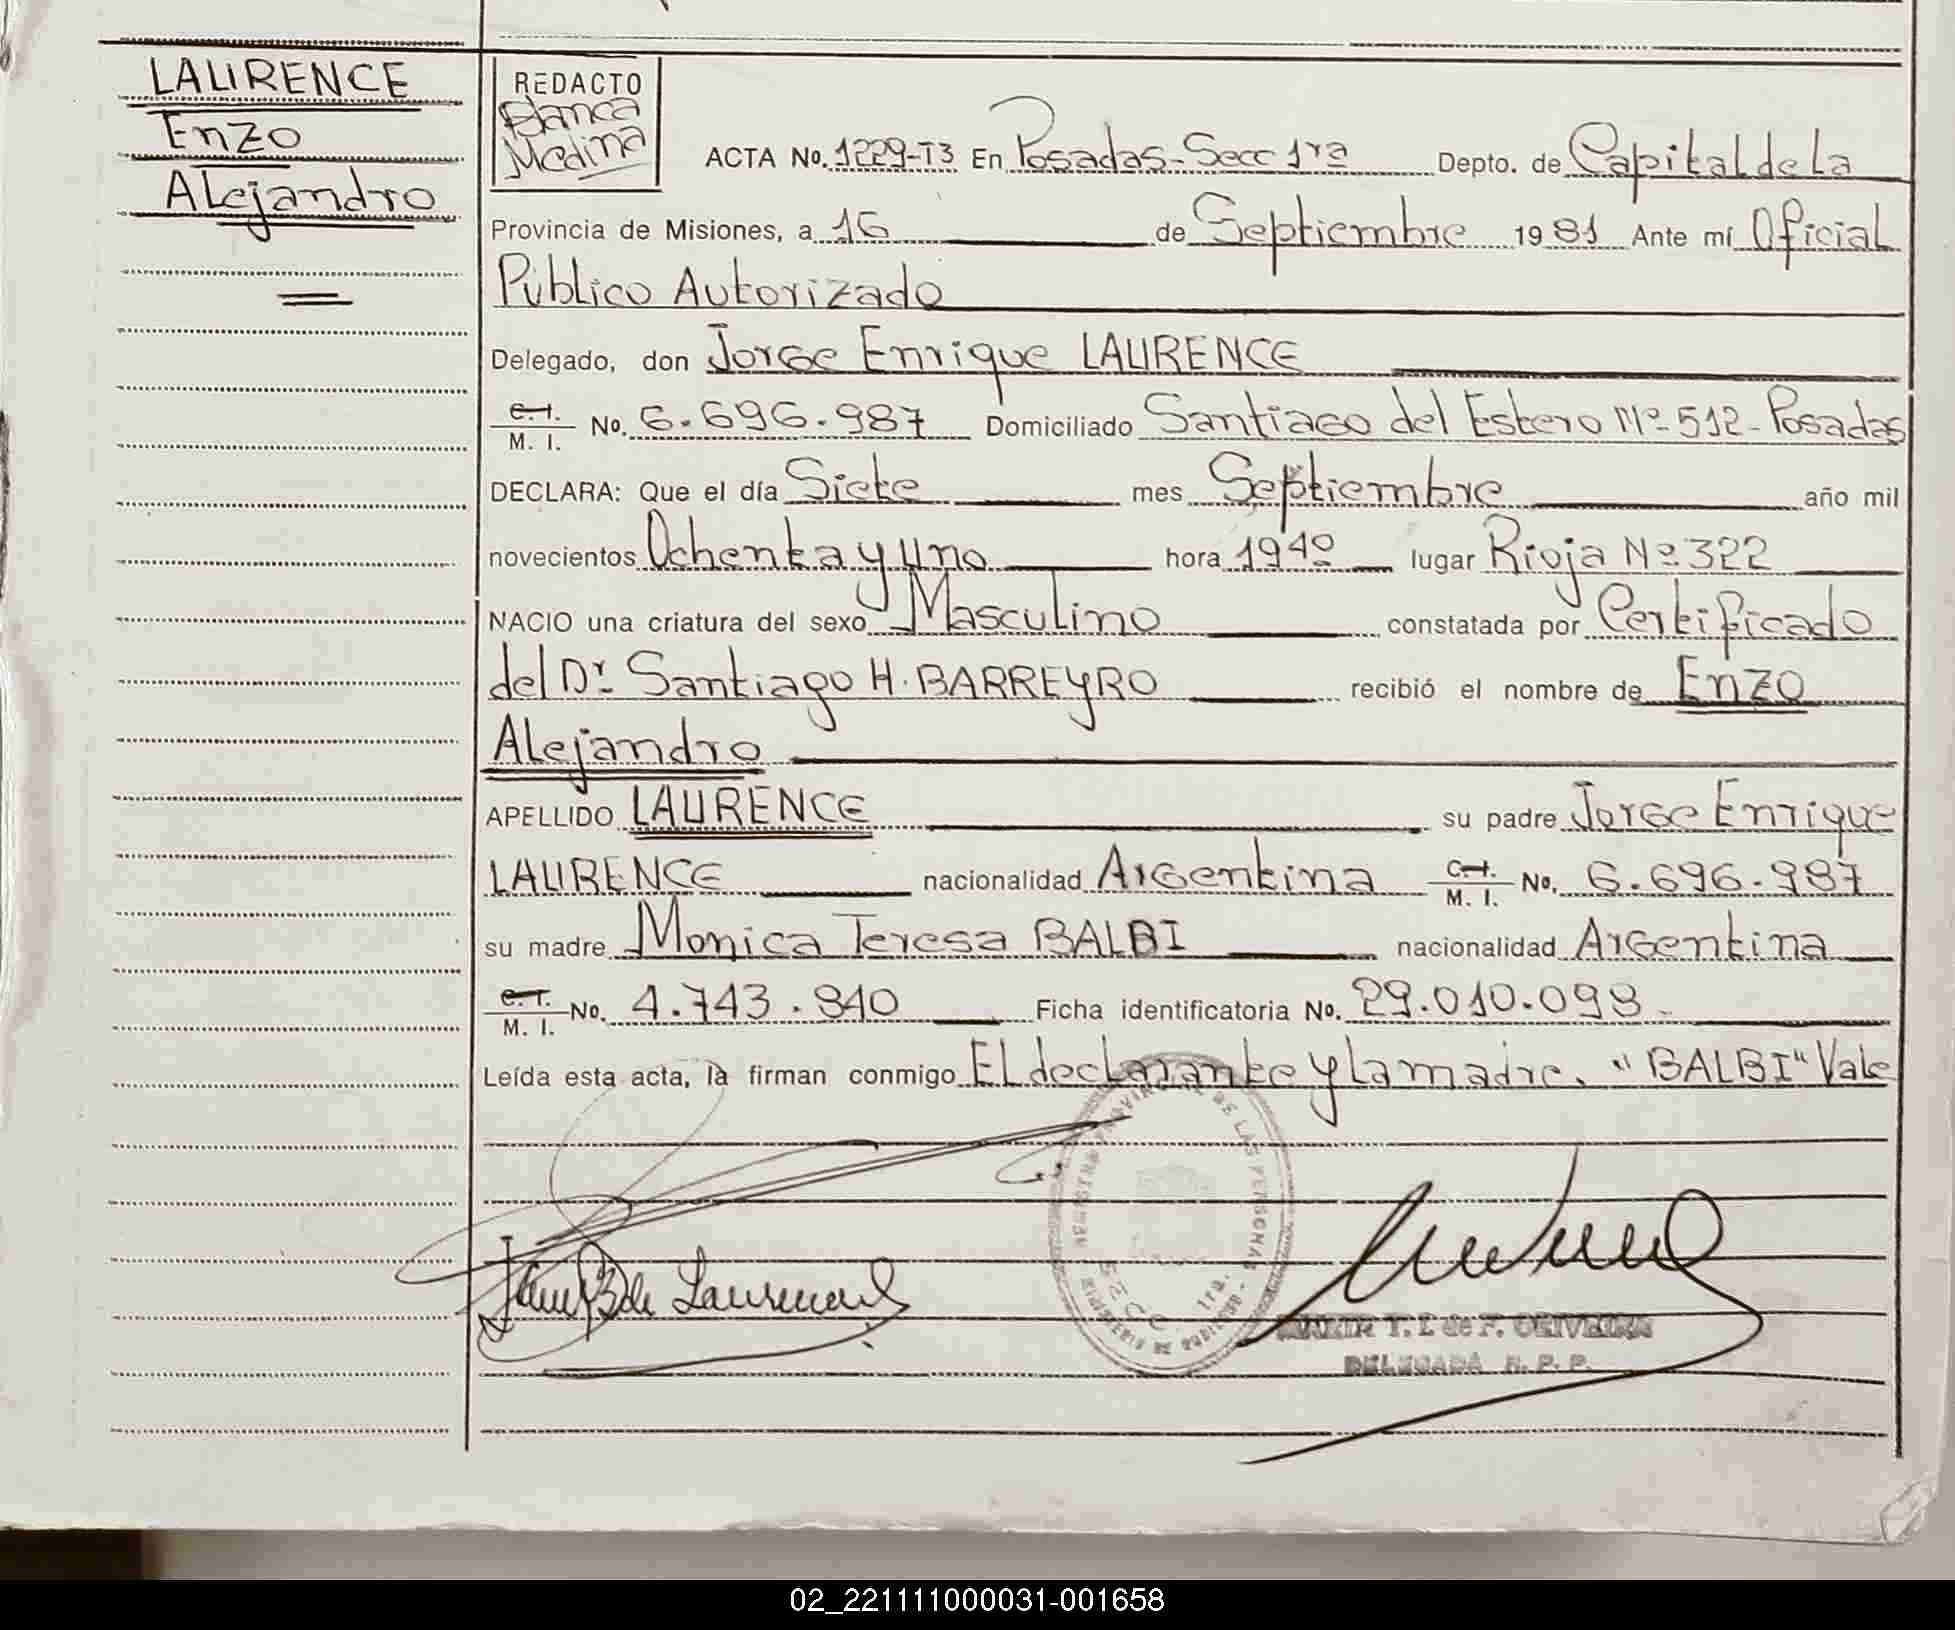 LAURENCE
Enzo
Alejandro
REDACTO
Blanca
Medina
ACTA No. 1229-T3 En Posadas-Secc 1ra Depto. de Capital de La
Provincia de Misiones, a 16 de Septiembre 1981 Ante mí Oficial
Público Autorizado
Delegado, don Jorge Enrique LAURENCE
C. I. / M. I. No. 6.696.987 Domiciliado Santiago del Estero Nº 512-Posadas
DECLARA: Que el día Siete mes Septiembre año mil
novecientos Ochenta y uno hora 19 40 lugar Rioja Nº 322
NACIO una criatura del sexo Masculino constatada por Certificado
del Dr. Santiago H. BARREYRO recibió el nombre de Enzo
Alejandro
APELLIDO LAURENCE su padre Jorge Enrique
LAURENCE nacionalidad Argentina C. I. / M. I. No. 6.696.987
su madre Monica Teresa BALBI nacionalidad Argentina
C. I. / M. I. No. 4.743.840 Ficha identificatoria No. 29.010.098
Leída esta acta, la firman conmigo El declarante y la madre. "BALBI" Vale
de Laurence
DE LAS PERSONAS
SECC 1ra.
MINISTERIO DE GOBIERNO
T. I. de F. OLIVEIRA
DELEGADA R. P. P.
02_221111000031-001658